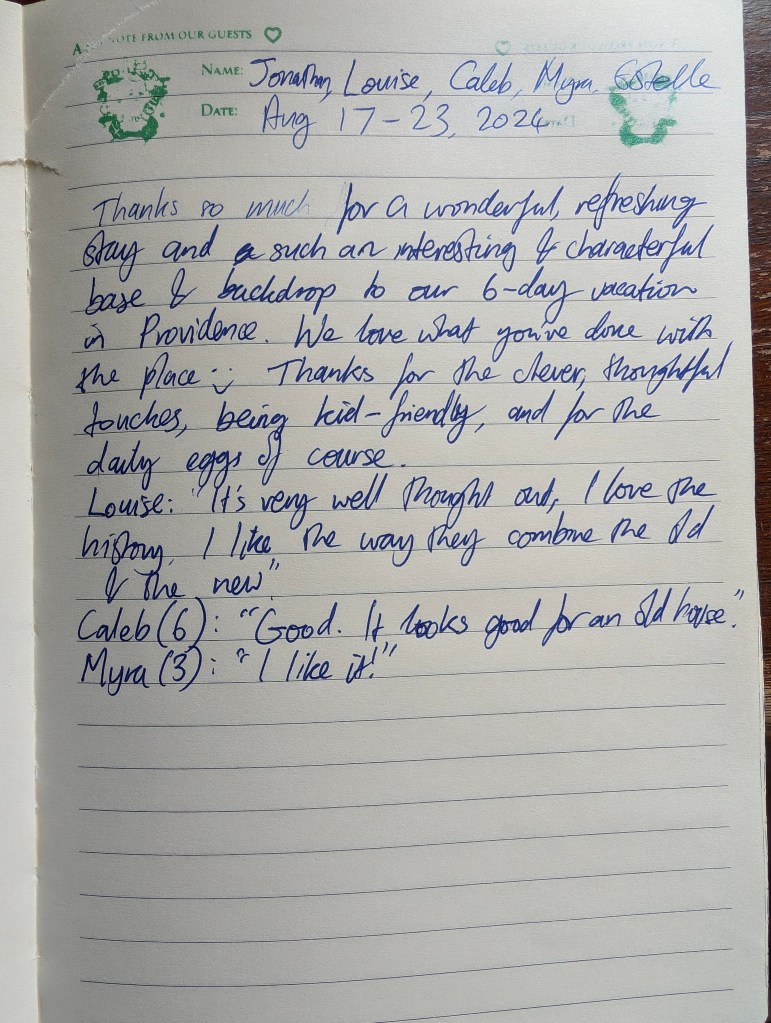 A NOTE FROM OUR GUESTS
NAME: Jonathan, Louise, Caleb, Myra, Estelle
DATE: Aug 17-23, 2024
Thanks so much for a wonderful, refreshing
stay and such an interesting & characterful
base & backdrop to our 6-day vacation
in Providence. We love what you've done with
the place :) Thanks for the clever, thoughtful
touches, being kid-friendly, and for the
daily eggs of course.
Louise: "It's very well thought out, I love the
history, I like the way they combine the old
& the new"
Caleb (6): "Good. It looks good for an old house."
Myra (3): "I like it!"